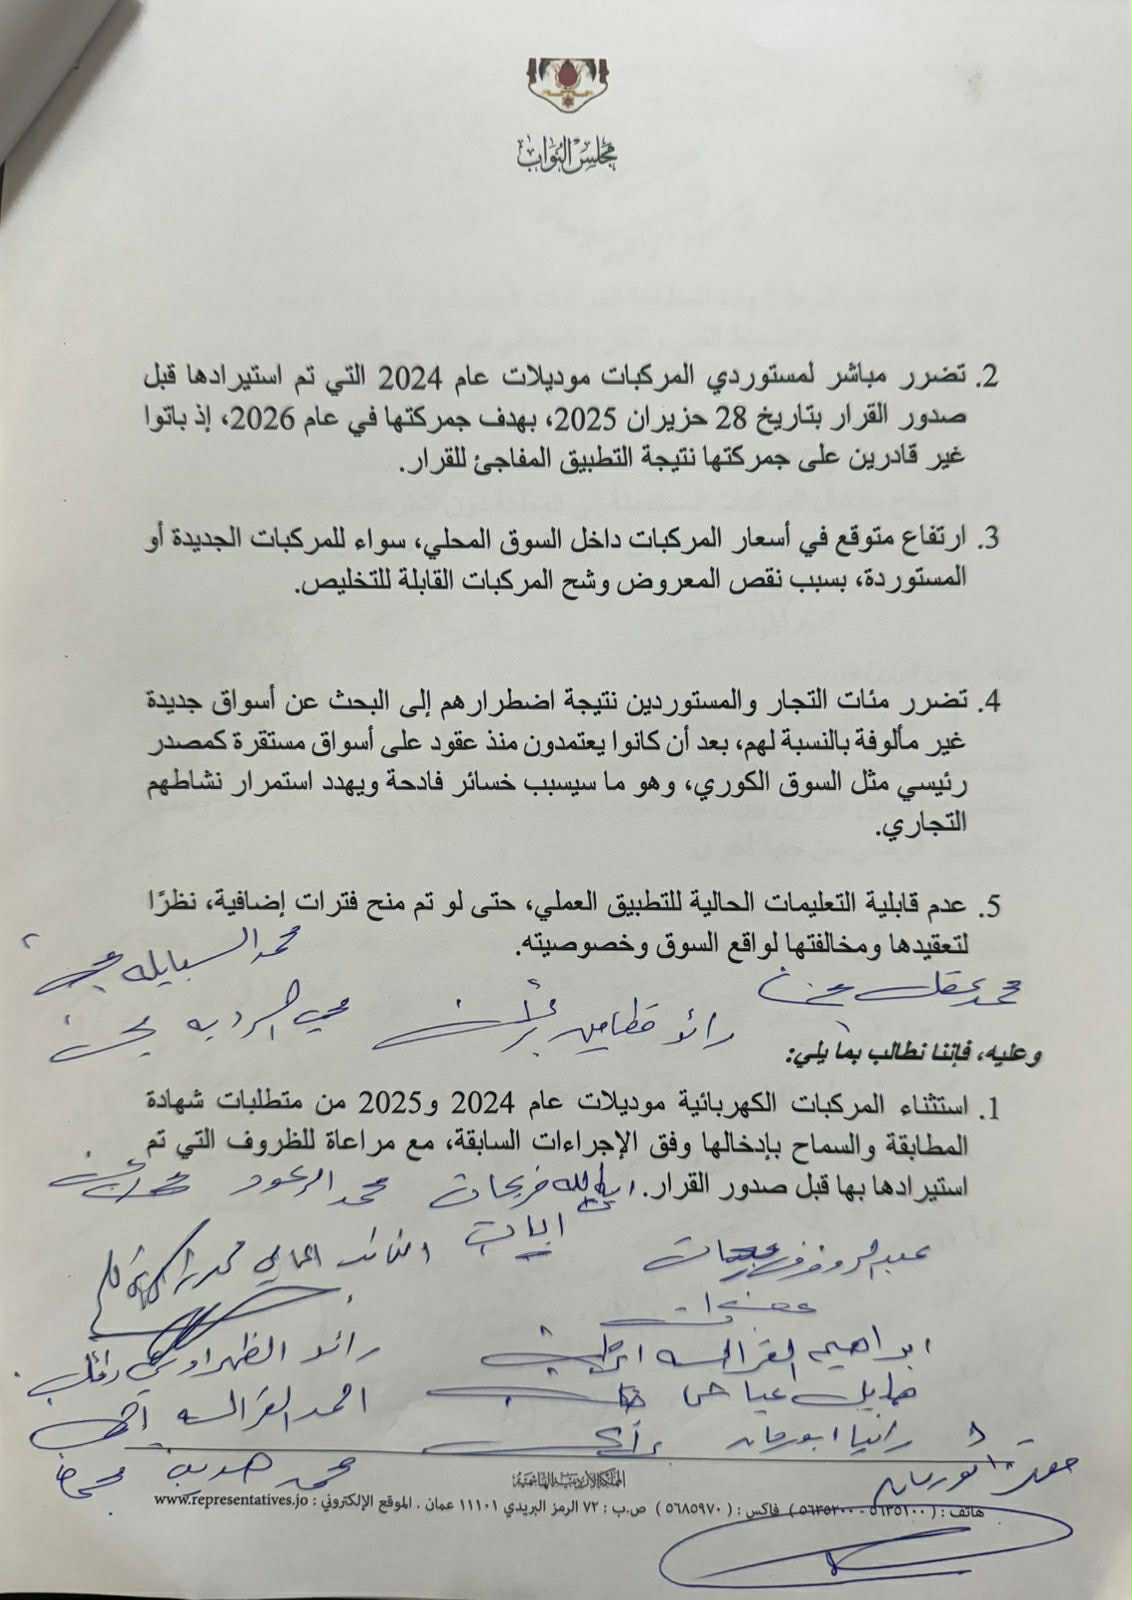 مجلس النواب
2. تضرر مباشر لمستوردي المركبات موديلات عام 2024 التي تم استيرادها قبل
صدور القرار بتاريخ 28 حزيران 2025، بهدف جمركتها في عام 2026، إذ باتوا
غير قادرين على جمركتها نتيجة التطبيق المفاجئ للقرار.
3. ارتفاع متوقع في أسعار المركبات داخل السوق المحلي، سواء للمركبات الجديدة أو
المستوردة، بسبب نقص المعروض وشح المركبات القابلة للتخليص.
4. تضرر مئات التجار والمستوردين نتيجة اضطرارهم إلى البحث عن أسواق جديدة
غير مألوفة بالنسبة لهم، بعد أن كانوا يعتمدون منذ عقود على أسواق مستقرة كمصدر
رئيسي مثل السوق الكوري، وهو ما سيسبب خسائر فادحة ويهدد استمرار نشاطهم
التجاري.
5. عدم قابلية التعليمات الحالية للتطبيق العملي، حتى لو تم منح فترات إضافية، نظرًا
لتعقيدها ومخالفتها لواقع السوق وخصوصيته.
محمد السبايله
محمد عقل
رائد قطامين
وعليه، فإننا نطالب بما يلي:
1. استثناء المركبات الكهربائية موديلات عام 2024 و2025 من متطلبات شهادة
المطابقة والسماح بإدخالها وفق الإجراءات السابقة، مع مراعاة للظروف التي تم
استيرادها بها قبل صدور القرار.
فريحات محمد
ابراهيم القرالسه
رائد الظهراوي
هايل عياش
احمد القرالسه
رانيا ابورمان
محمد هديب
المملكة الأردنية الهاشمية
هاتف : ( ٥٦٣٥١٠٠ - ٥٦٣٥٢٠٠ ) فاكس : ( ٥٦٨٥٩٧٠ ) ص.ب : ٧٢ الرمز البريدي ١١١٠١ عمان . الموقع الإلكتروني : www.representatives.jo